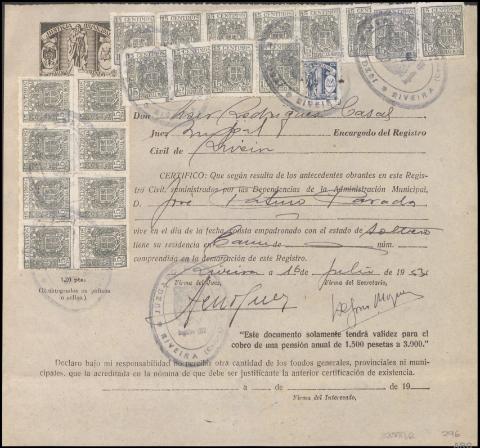 15 CENTIMOS
JUZGADO
RIVEIRA
Don Rodriguez Casal
Juez Mnpal Encargado del Registro
Civil de Riveira
CERTIFICO: Que según resulta de los antecedentes obrantes en este Regis-
tro Civil, suministrados por las Dependencias de la Administración Municipal,
D. José Parada
vive en el día de la fecha y consta empadronado con el estado de soltero
tiene su residencia en núm.
comprendida en la demarcación de este Registro.
Riveira a 1º de Julio de 1953
Firma del Juez, Firma del Secretario,
1,20 ptas.
(Reintegrados en póliza
o sellos.)
JUZGADO
RIVEIRA
"Este documento solamente tendrá validez para el
cobro de una pensión anual de 1.500 pesetas a 3.000."
Declaro bajo mi responsabilidad no percibir otra cantidad de los fondos generales, provinciales ni muni-
cipales, que la acreditada en la nómina de que debe ser justificante la anterior certificación de existencia.
a de de 19
Firma del Interesado,
296